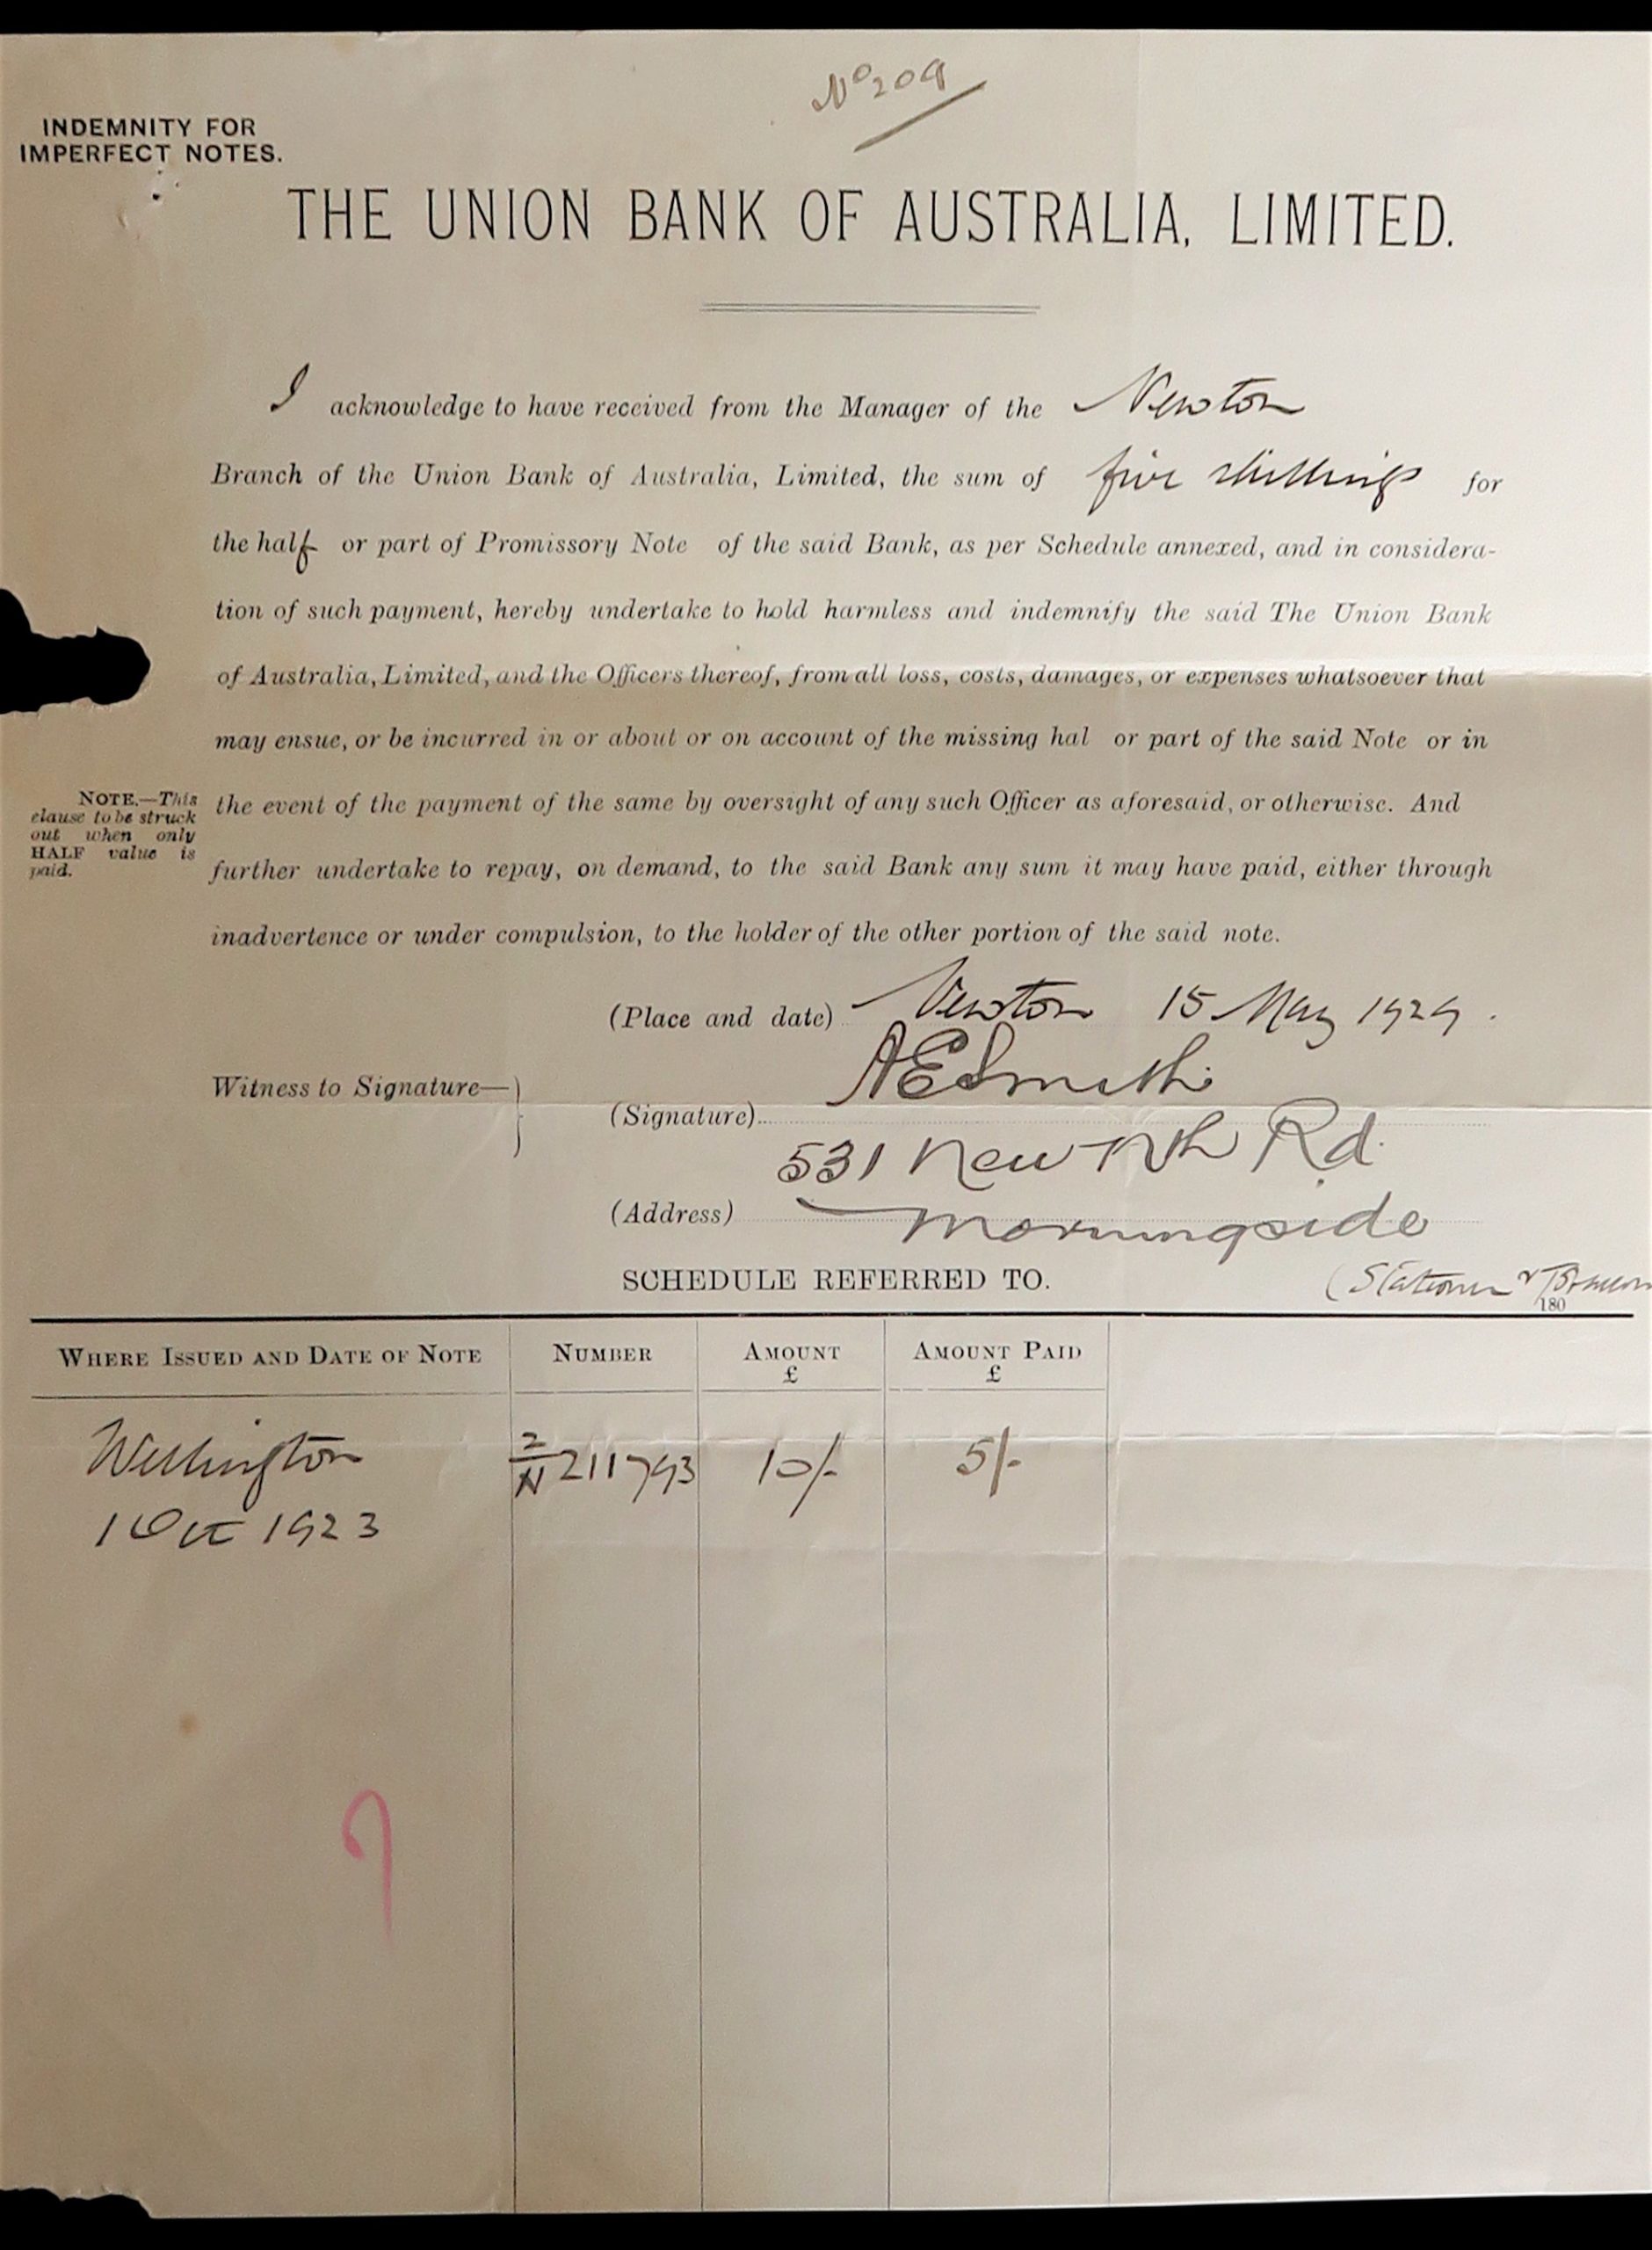 No 209
INDEMNITY FOR
IMPERFECT NOTES.
THE UNION BANK OF AUSTRALIA, LIMITED.
I acknowledge to have received from the Manager of the Newton
Branch of the Union Bank of Australia, Limited, the sum of five shillings for
the half or part of Promissory Note of the said Bank, as per Schedule annexed, and in considera-
tion of such payment, hereby undertake to hold harmless and indemnify the said The Union Bank
of Australia, Limited, and the Officers thereof, from all loss, costs, damages, or expenses whatsoever that
may ensue, or be incurred in or about or on account of the missing hal or part of the said Note or in
the event of the payment of the same by oversight of any such Officer as aforesaid, or otherwise. And
further undertake to repay, on demand, to the said Bank any sum it may have paid, either through
inadvertence or under compulsion, to the holder of the other portion of the said note.
NOTE.—This
clause to be struck
out when only
HALF value is
paid.
(Place and date) Newton 15 May 1929.
Witness to Signature—
(Signature) AESmith
531 New Nth Rd.
(Address) Morningside
SCHEDULE REFERRED TO.
(Stationer &
180
WHERE ISSUED AND DATE OF NOTE NUMBER AMOUNT £ AMOUNT PAID £
Wellington 2/N 211793 10/- 5/-
1 Oct 1923